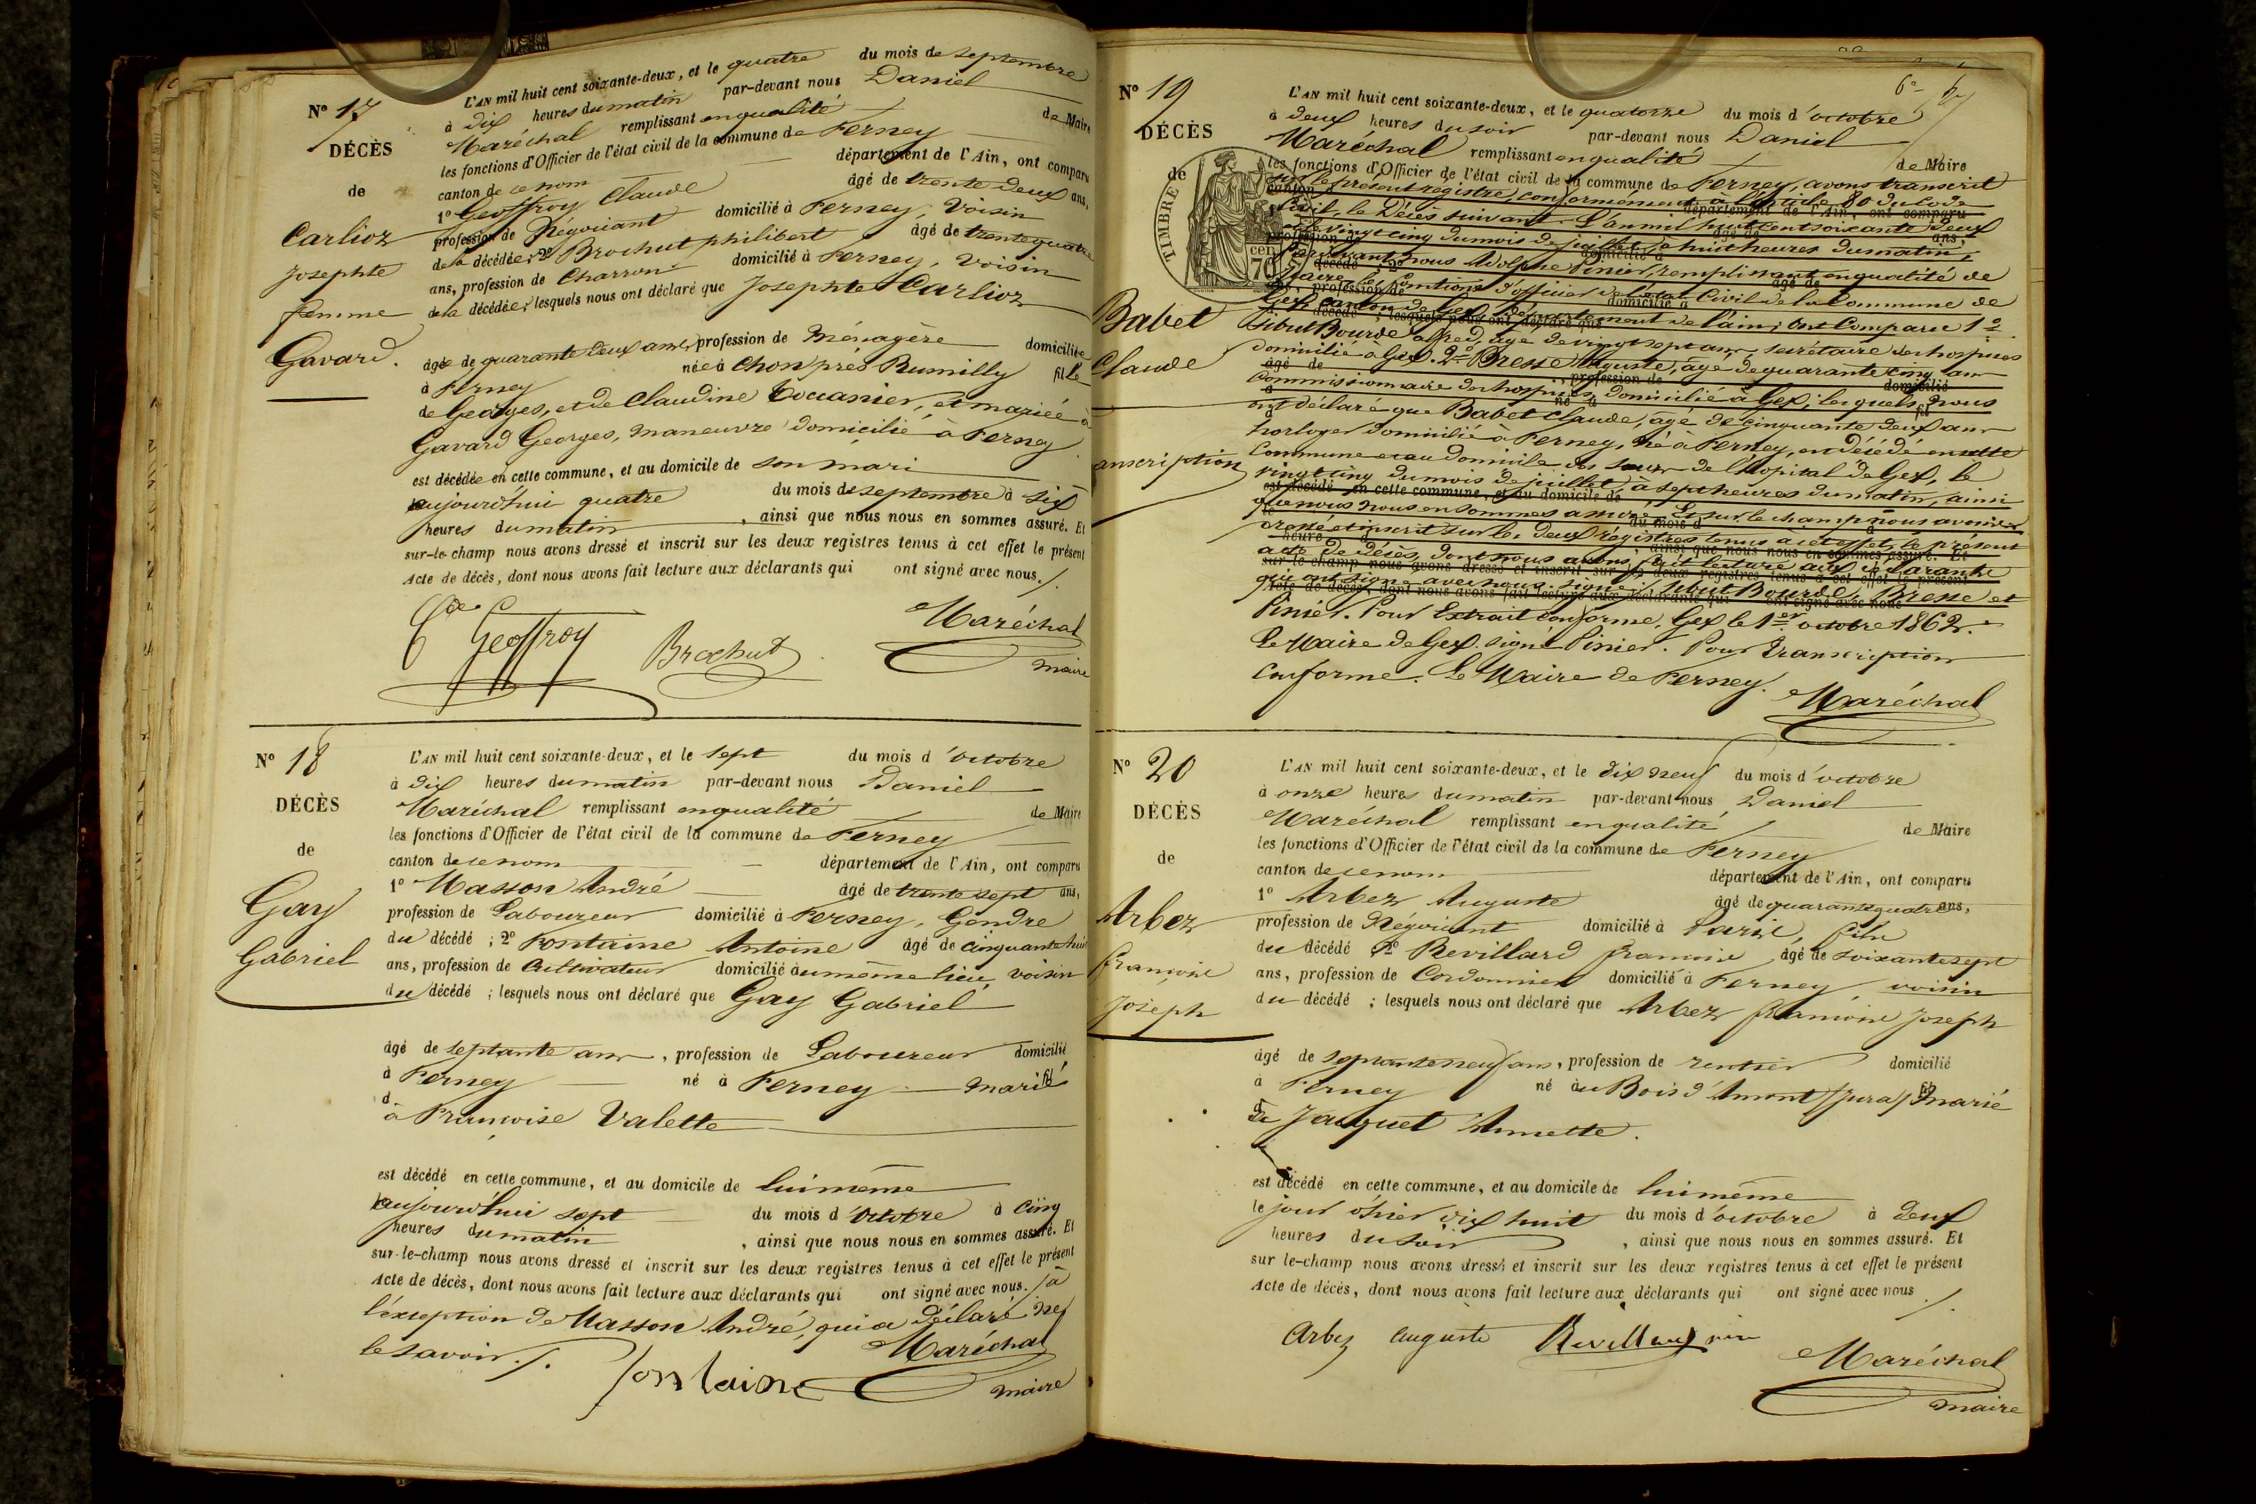 Nº 17
DÉCÈS
de
Carlioz
Josephte
femme
Gavard.
L'AN mil huit cent soixante-deux, et le quatre du mois de septembre
à dix heures du matin par-devant nous Daniel
Maréchal remplissant en qualité de Maire
les fonctions d'Officier de l'état civil de la commune de Ferney
canton de ce nom département de l'Ain, ont comparu
1º Geoffroy Claude âgé de trente deux ans,
profession de Négociant domicilié à Ferney, Voisin
de la décédée; 2º Brochut philibert âgé de trente quatre
ans, profession de Charron domicilié à Ferney, Voisin
de la décédée; lesquels nous ont déclaré que Josephte Carlioz
âgée de quarante deux ans, profession de Ménagère domiciliée
à Ferney née à Chon près Rumilly fille
de Georges, et de Claudine Vouanier, et mariée à
Gavard Georges, maneuvre domicilié à Ferney
est décédée en cette commune, et au domicile de son mari
aujourd'hui quatre du mois de septembre à six
heures du matin, ainsi que nous nous en sommes assuré. Et
sur-le-champ nous avons dressé et inscrit sur les deux registres tenus à cet effet le présent
Acte de décès, dont nous avons fait lecture aux déclarants qui ont signé avec nous./.
Cde Geoffroy Brochut Maréchal
maire
Nº 18
DÉCÈS
de
Gay
Gabriel
L'AN mil huit cent soixante-deux, et le sept du mois d'octobre
à dix heures du matin par-devant nous Daniel
Maréchal remplissant en qualité de Maire
les fonctions d'Officier de l'état civil de la commune de Ferney
canton de ce nom département de l'Ain, ont comparu
1º Masson André âgé de trente sept ans,
profession de Laboureur domicilié à Ferney, Gendre
du décédé; 2º Fontaine Antoine âgé de cinquante huit
ans, profession de Cultivateur domicilié au même lieu, voisin
du décédé; lesquels nous ont déclaré que Gay Gabriel
âgé de septante ans, profession de Laboureur domicilié
à Ferney né à Ferney marié fil
d
à Françoise Valette
est décédé en cette commune, et au domicile de lui même
aujourd'hui sept du mois d'octobre à cinq
heures du matin, ainsi que nous nous en sommes assuré. Et
sur-le-champ nous avons dressé et inscrit sur les deux registres tenus à cet effet le présent
Acte de décès, dont nous avons fait lecture aux déclarants qui ont signé avec nous. / à
l'éxception de Masson André, qui a déclaré ne
le savoir./.
fontaine Maréchal
maire
6e
Nº 19
DÉCÈS
de
TIMBRE
70 cen
Babet
Claude
anscription
L'AN mil huit cent soixante-deux, et le quatorze du mois d'octobre
à deux heures du soir par-devant nous Daniel
Maréchal remplissant en qualité de Maire
les fonctions d'Officier de l'état civil de la commune de Ferney, avons transcrit
sur le présent registre, conformément à l'article 80 du Code
Civil, le Décès suivant. L'an mil huit cent soixante deux
et le vingt cinq du mois de juillet, à huit heures du matin,
Pardevant nous Adolphe Pinier, remplissant en qualité de
Maire les fonctions d'officier de l'etat Civil de la Commune de
Gex, canton de Gex, département de l'ain; ont Comparu 1º
Sibut Bourde alfred, âgé de vingt sept ans, secrétaire des hospices
domicilié à Gex. 2º Bresse Auguste, âgé de quarante cinq ans
Commissionnaire des hospices, domicilié à Gex; lesquels nous
ont déclaré que Babet Claude, âgé de cinquante deux ans
horloger domicilié à Ferney, né à Ferney, est décédé en cette
Commune et au domicile des sœurs de l'hopital de Gex, le
vingt cinq du mois de juillet, à sept heures du matin, ainsi
que nous nous en sommes assuré. Et sur le champ nous avons
dressé et inscrit sur les deux régistres tenus à cet effet, le présent
acte de décès, dont nous avons fait lecture aux déclarants
qui ont signé avec nous. signé Sibut Bourde, Bresse et
Pinier. Pour Extrait Conforme, Gex le 1er octobre 1862.
Le Maire de Gex signé Pinier. Pour Transcription
Conforme. Le Maire de Ferney.
Maréchal
Nº 20
DÉCÈS
de
Arbez
françois
Joseph
L'AN mil huit cent soixante-deux, et le dix neuf du mois d'octobre
à onze heures du matin par-devant nous Daniel
Maréchal remplissant en qualité de Maire
les fonctions d'Officier de l'état civil de la commune de Ferney
canton de ce nom département de l'Ain, ont comparu
1º Arbez Auguste âgé de quarante quatre ans,
profession de Négociant domicilié à Paris, fils
du décédé 2º Revillard françois, âgé de soixante sept
ans, profession de Cordonnier domicilié à Ferney, voisin
du décédé; lesquels nous ont déclaré que Arbez françois Joseph
âgé de septante neuf ans, profession de rentier domicilié
à Ferney né au Bois d'Amont (Jura) marié fil
de Jacquet Annette.
est décédé en cette commune, et au domicile de lui même
le jour d'hier dix huit du mois d'octobre à deux
heures du soir, ainsi que nous nous en sommes assuré. Et
sur le-champ nous avons dressé et inscrit sur les deux registres tenus à cet effet le présent
Acte de décès, dont nous avons fait lecture aux déclarants qui ont signé avec nous./.
Arbez auguste Revillard Maréchal
maire